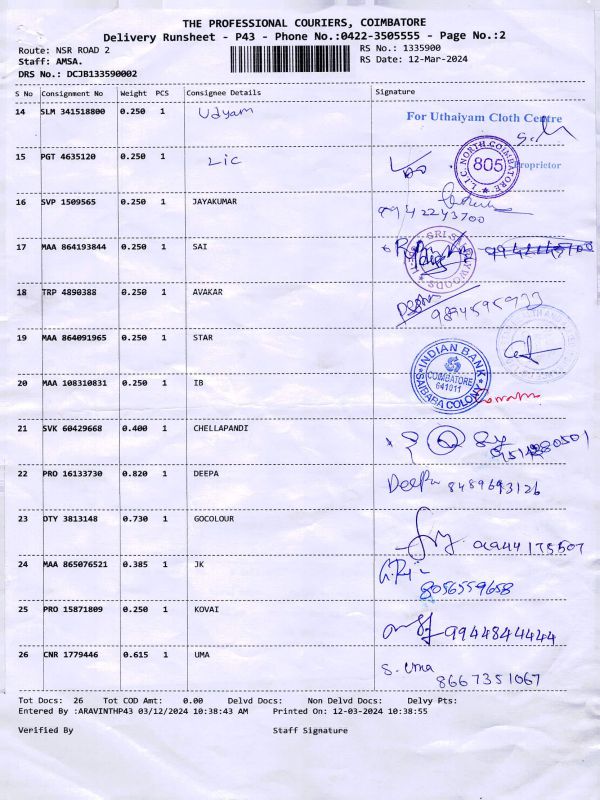 THE PROFESSIONAL COURIERS, COIMBATORE
Delivery Runsheet - P43 - Phone No.:0422-3505555 - Page No.:2
Route: NSR ROAD 2
RS No.: 1335900
Staff: AMSA.
RS Date: 12-Mar-2024
DRS No.: DCJB133590002
S No Consignment No Weight PCS Consignee Details Signature
14 SLM 341518800 0.250 1 Udyam For Uthaiyam Cloth Centre
Proprietor
15 PGT 4635120 0.250 1 LIC L.I.C. NORTH COIMBATORE 805
16 SVP 1509565 0.250 1 JAYAKUMAR 9942243700
17 MAA 864193844 0.250 1 SAI SRI
18 TRP 4890388 0.250 1 AVAKAR
19 MAA 864091965 0.250 1 STAR
20 MAA 108310831 0.250 1 IB INDIAN BANK COIMBATORE 641011 SAIBABA COLONY
21 SVK 60429668 0.400 1 CHELLAPANDI
22 PRO 16133730 0.820 1 DEEPA Deepa 8489693126
23 OTY 3813148 0.730 1 GOCOLOUR
24 MAA 865076521 0.385 1 JK 8056559658
25 PRO 15871809 0.250 1 KOVAI 9944844444
26 CNR 1779446 0.615 1 UMA S. Uma 8667351067
Tot Docs: 26 Tot COD Amt: 0.00 Delvd Docs: Non Delvd Docs: Delvy Pts:
Entered By :ARAVINTHP43 03/12/2024 10:38:43 AM Printed On: 12-03-2024 10:38:55
Verified By Staff Signature